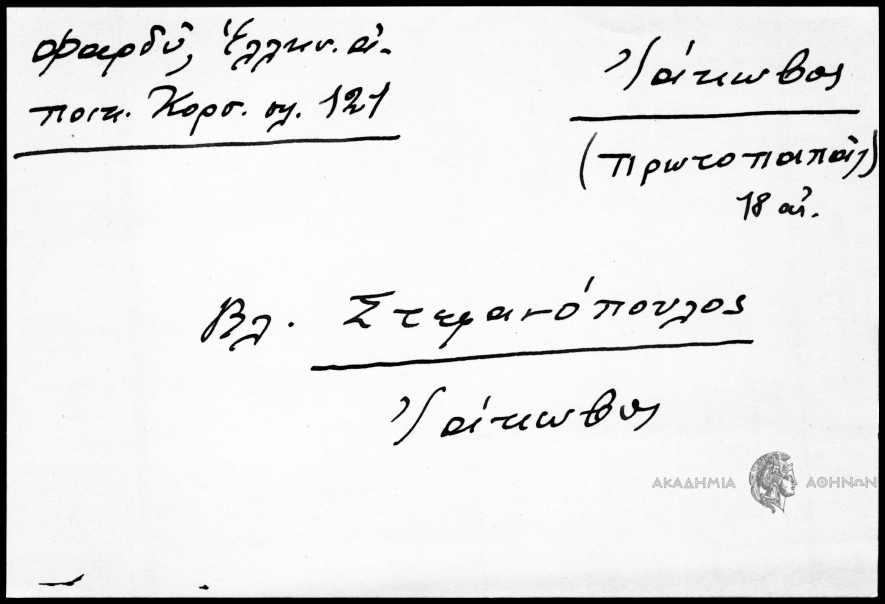 Φαρδύ, Ἑλλην. ἀ-
ποικ. Κορσ. σελ. 121
Ἰάκωβος
(πρωτοπαπάς)
18 αἰ.
Βλ. Στεφανόπουλος
Ἰάκωβος
ΑΚΑΔΗΜΙΑ ΑΘΗΝΩΝ